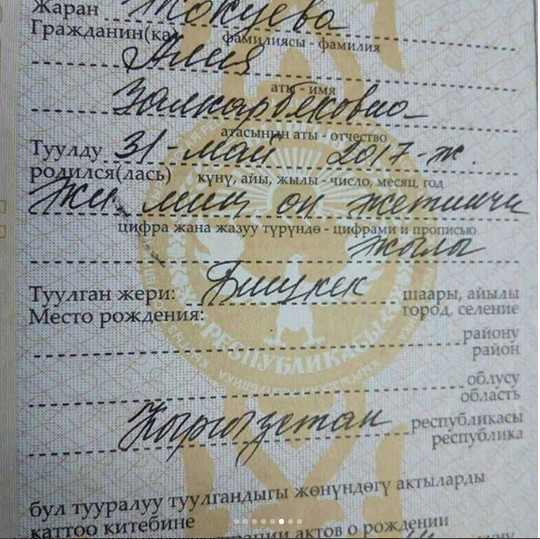 Жаран Токуева
Гражданин(ка) фамилиясы - фамилия
Алия
аты - имя
Залкарбековна
атасынын аты - отчество
Туулду 31 - май 2017-ж.
родился(лась) күнү, айы, жылы - число, месяц, год
эки миң он жетинчи
цифра жана жазуу түрүндө - цифрами и прописью
жылы
Туулган жери: Бишкек шаары, айылы
Место рождения: город, селение
району
район
облусу
область
Кыргызстан республикасы
республика
бул тууралуу туулгандыгы жөнүндөгү актыларды
каттоо китебине
актов о рождении
РЕСПУБЛИКАСЫ